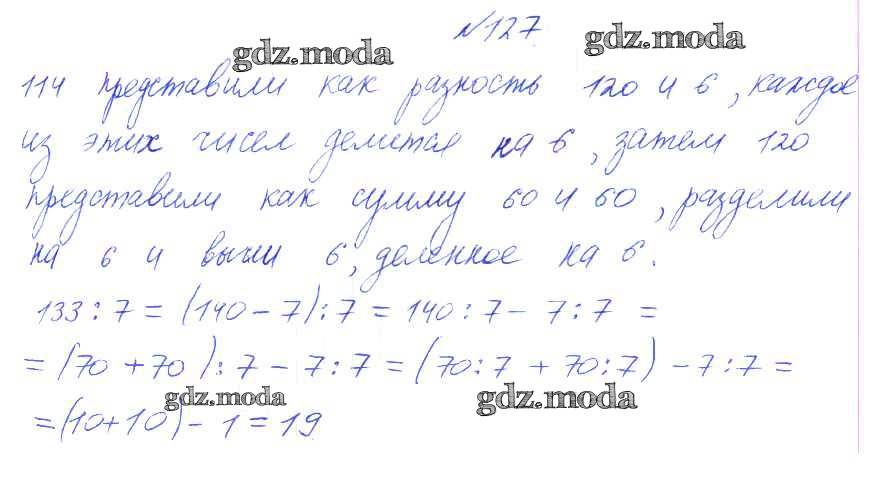 №127
gdz.moda gdz.moda
114 представили как разность 120 и 6, каждое
из этих чисел делится на 6, затем 120
представили как сумму 60 и 60, разделили
на 6 и вычли 6, деленное на 6.
133 : 7 = (140 - 7) : 7 = 140 : 7 - 7 : 7 =
= (70 + 70) : 7 - 7 : 7 = (70 : 7 + 70 : 7) - 7 : 7 =
gdz.moda gdz.moda
= (10 + 10) - 1 = 19